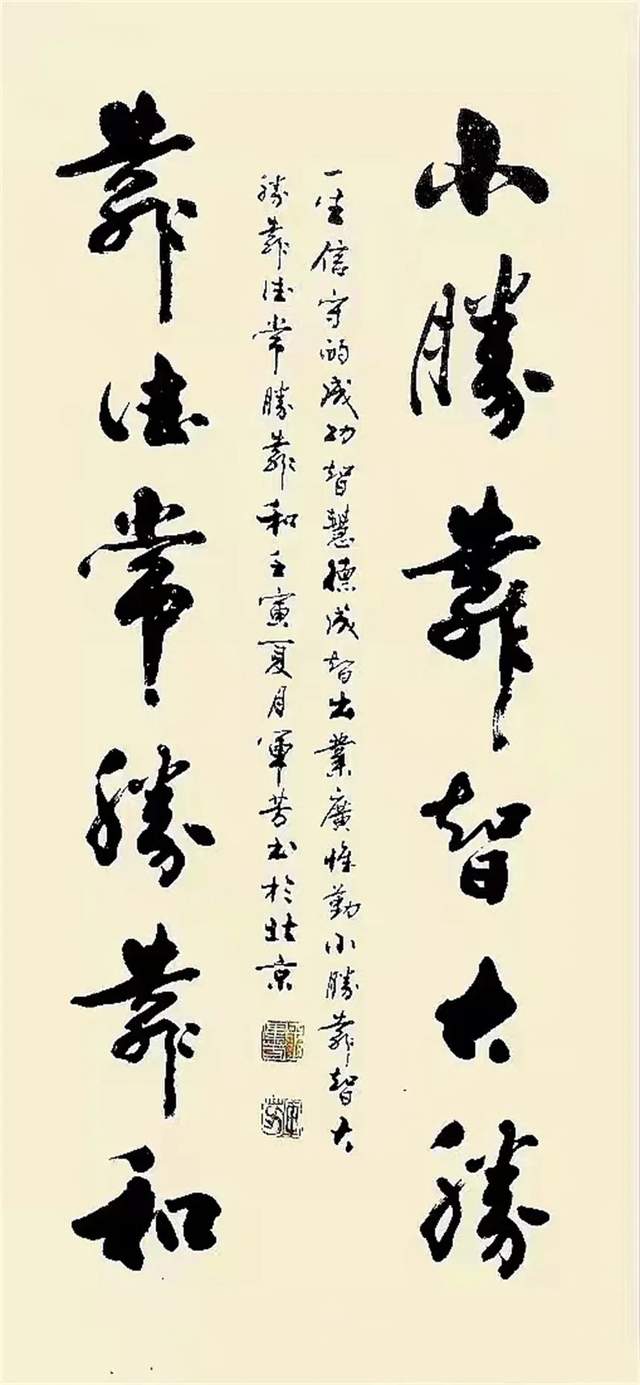 小勝靠智大勝
靠德常勝靠和
一生信守的成功智慧德成智出業廣惟勤小勝靠智大
勝靠德常勝靠和壬寅夏月軍芳書於北京